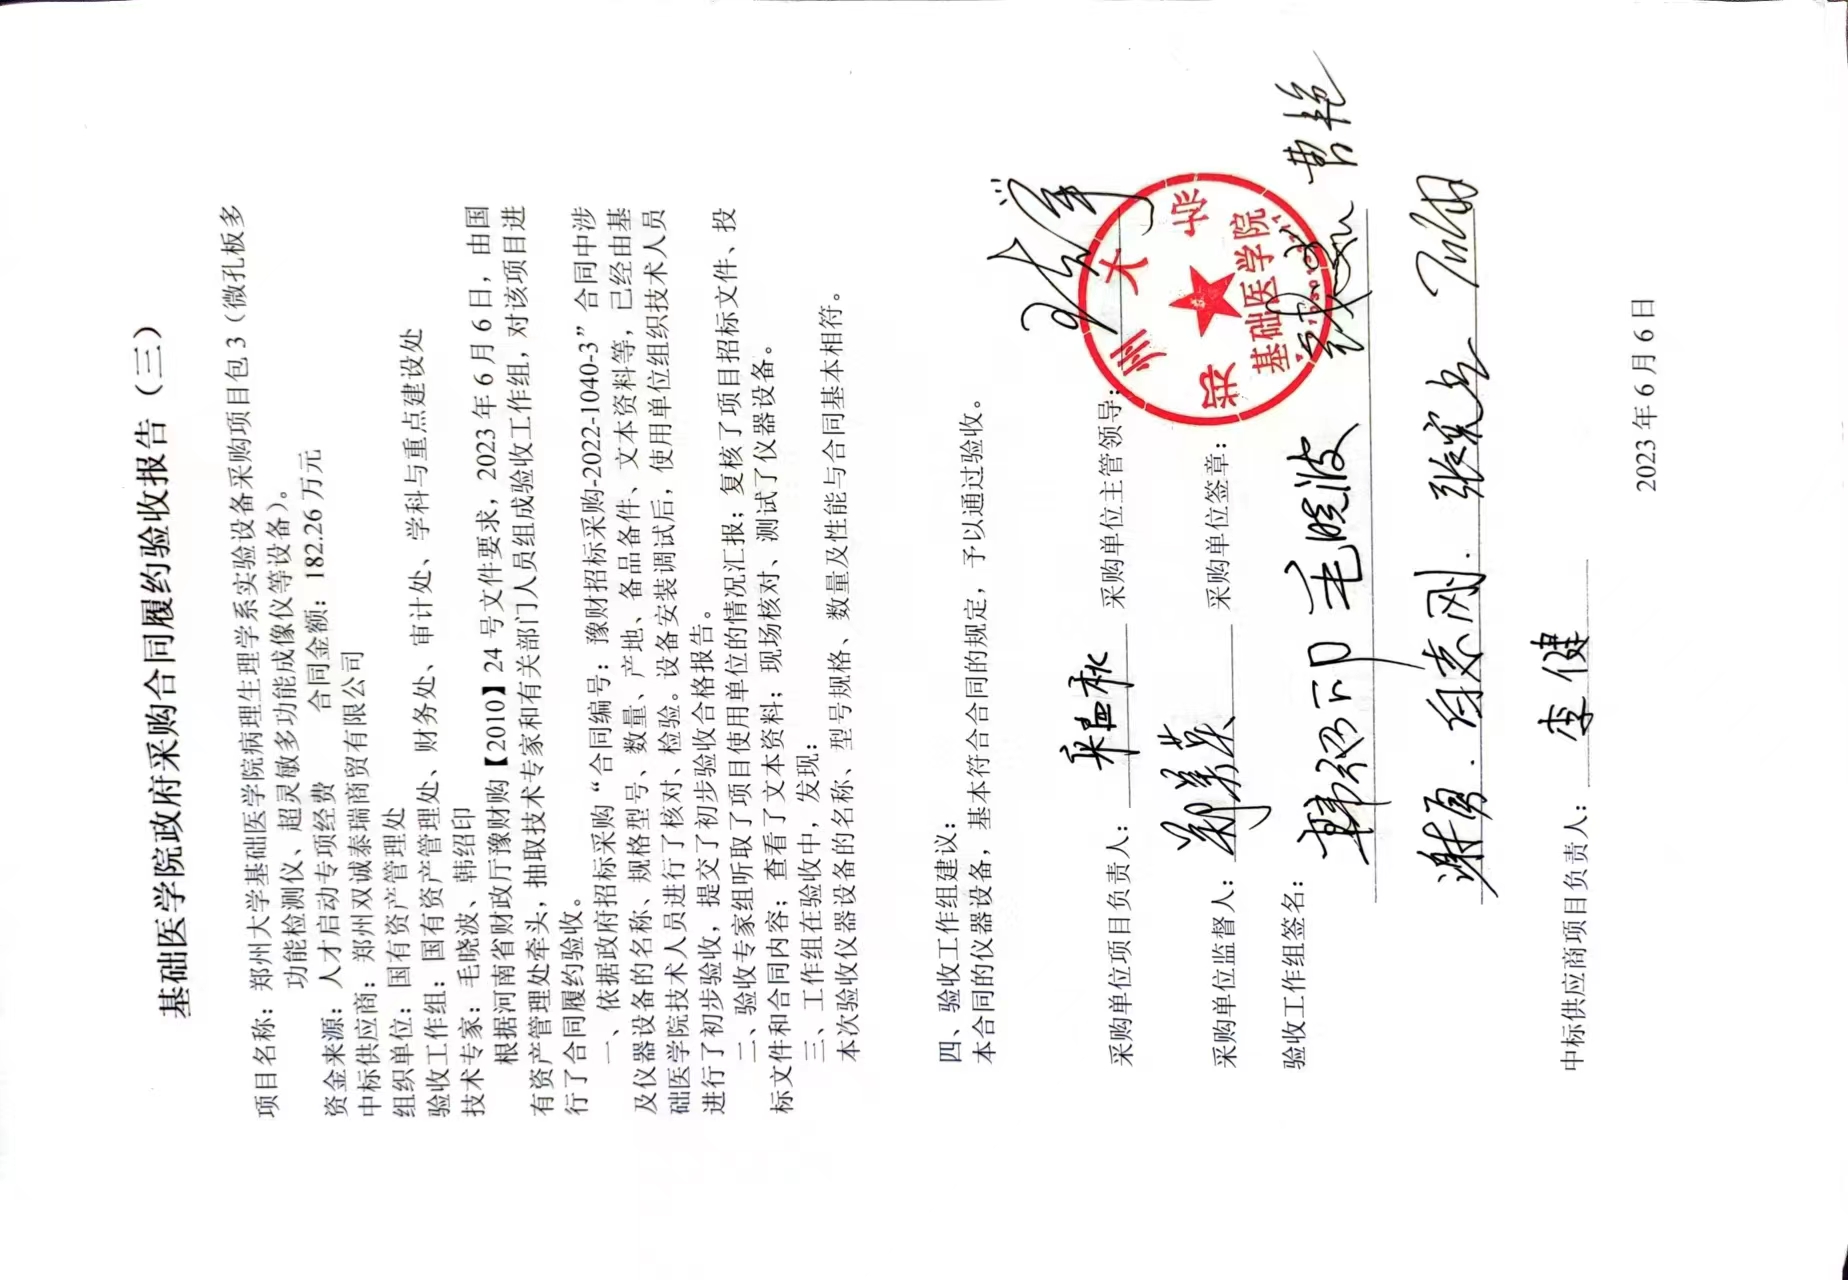 基础医学院政府采购合同履约验收报告（三）
项目名称：郑州大学基础医学院病理生理学系实验设备采购项目包 3（微孔板多
功能检测仪、超灵敏多功能成像仪等设备）。
资金来源：人才启动专项经费 合同金额：182.26 万元
中标供应商：郑州双诚泰瑞商贸有限公司
组织单位：国有资产管理处
验收工作组：国有资产管理处、财务处、审计处、学科与重点建设处
技术专家：毛晓波、韩绍印
根据河南省财政厅豫财购【2010】24 号文件要求，2023 年 6 月 6 日，由国
有资产管理处牵头，抽取技术专家和有关部门人员组成验收工作组，对该项目进
行了合同履约验收。
一、依据政府招标采购“合同编号：豫财招标采购-2022-1040-3”合同中涉
及仪器设备的名称、规格型号、数量、产地、备品备件、文本资料等，已经由基
础医学院技术人员进行了核对、检验。设备安装调试后，使用单位组织技术人员
进行了初步验收，提交了初步验收合格报告。
二、验收专家组听取了项目使用单位的情况汇报；复核了项目招标文件、投
标文件和合同内容；查看了文本资料；现场核对、测试了仪器设备。
三、工作组在验收中，发现：
本次验收仪器设备的名称、型号规格、数量及性能与合同基本相符。
四、验收工作组建议：
本合同的仪器设备，基本符合合同的规定，予以通过验收。
采购单位项目负责人： 采购单位主管领导：
采购单位监督人： 采购单位签章：
郑州大学
基础医学院
验收工作组签名： 韩绍印 毛晓波 曹艳
谢勇
中标供应商项目负责人：李健
2023 年 6 月 6 日